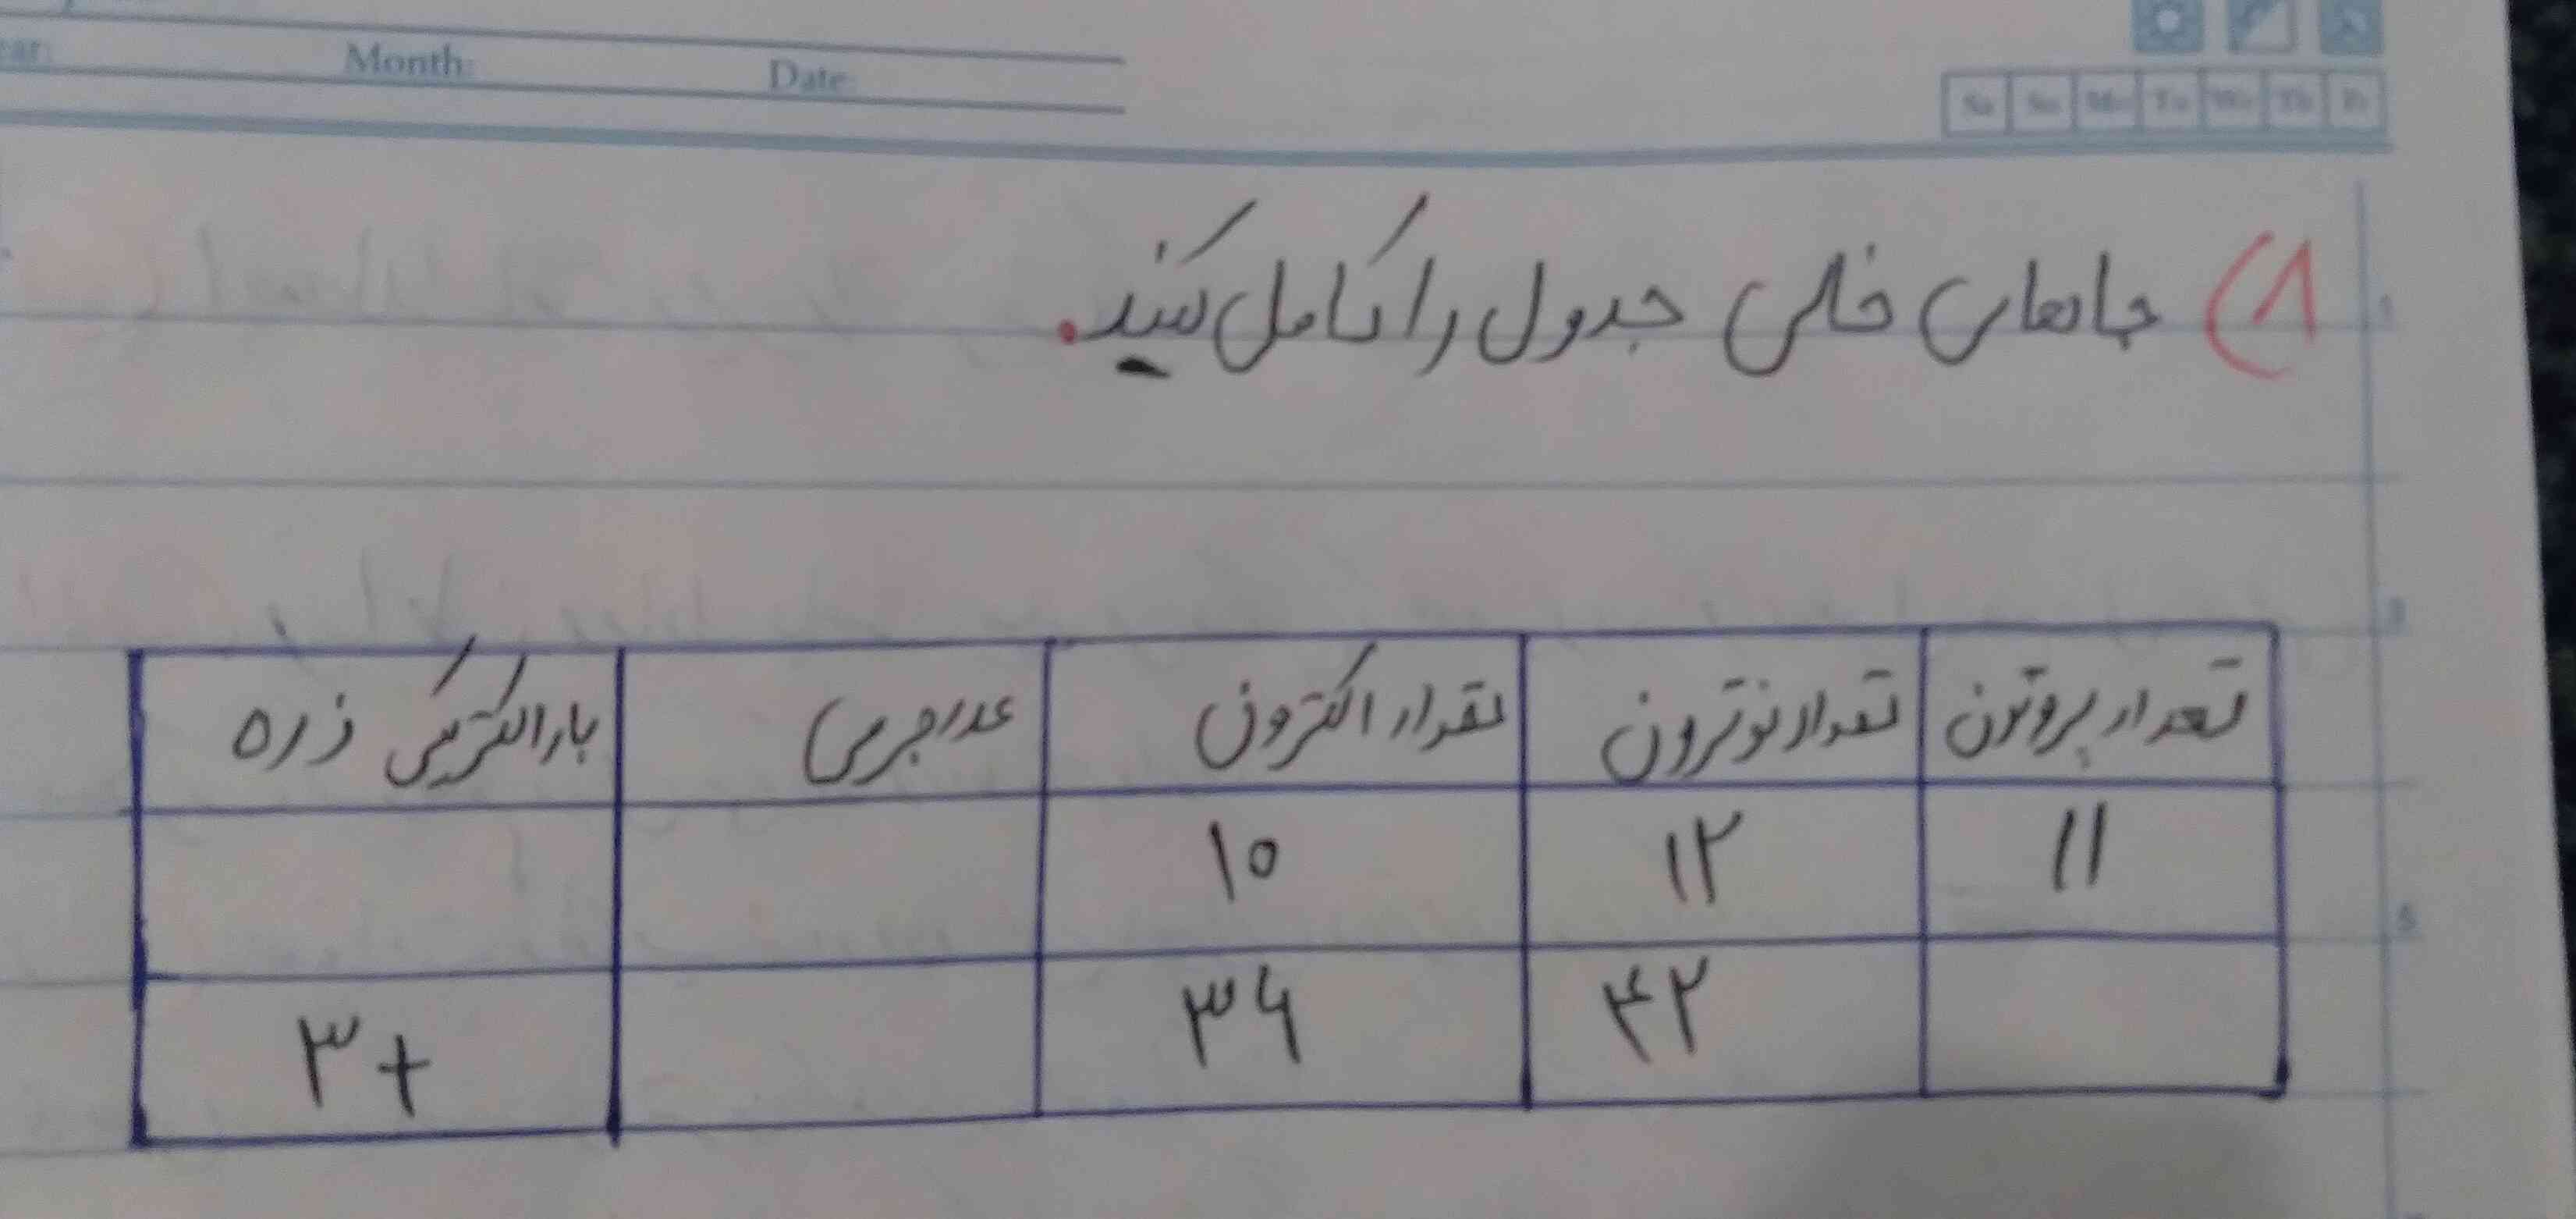 Month: Date:
Sa Su Mo Tu We Th Fr
۸) جاهای خالی جدول را کامل کنید.
تعداد پروتون تعداد نوترون تعداد الکترون عدد جرمی بار الکتریکی ذره
۱۱ ۱۲ ۱۰
۴۲ ۳۶ +۳